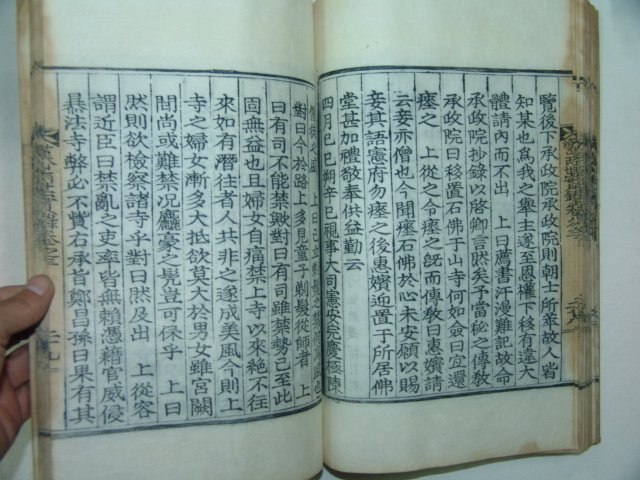 覽後下承政院承政院則朝士所萃故人皆
知某也爲我之舉主遂至恩權下移有違大
體請內而不出 上曰薦書汗漫難記故命
承政院抄錄以啓卿言然矣予當秘之傳敎
承政院曰移置石佛于山寺何如僉曰宜還
瘞之 上從之令瘞之旣而傳敎曰惠嬪請
云妾亦僧也今聞瘞石佛於心未安願以賜
妾其語憲府勿瘞之後惠嬪近置于所居佛
堂甚加禮敬奉供益勤云
四月己巳朔辛巳視事大司憲安完慶極陳
僧徒之盛 上曰
對曰今於路上多見童子剃髮從師者 上
曰有司不能禁歟對曰有司雖禁勢已至此
固無益也且婦女自痛禁上寺以來絶不往
來如有潛往者人共非之遂成美風今則上
寺之婦女漸多大抵欲莫大於男女雖宮闕
間尚或難禁况麤豪之髡豈可保乎 上曰
然則欲檢察諸寺乎對曰然及出 上從容
謂近臣曰禁亂之吏率皆無賴憑藉官威侵
暴法寺弊必不貲右承旨鄭昌孫曰果有其